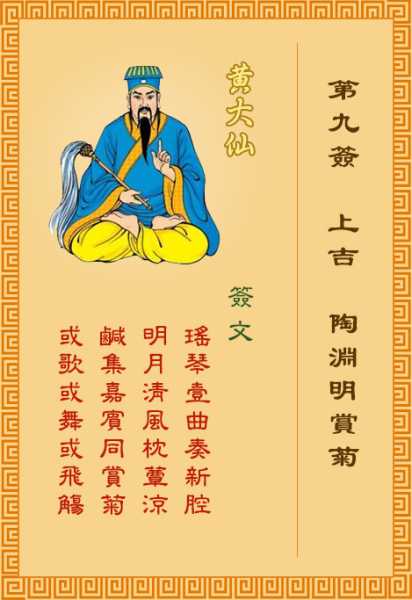 第九簽　上吉　陶淵明賞菊
黄大仙
簽文
瑤琴壹曲奏新腔
明月清風枕蕈涼
鹹集嘉賓同賞菊
或歌或舞或飛觴